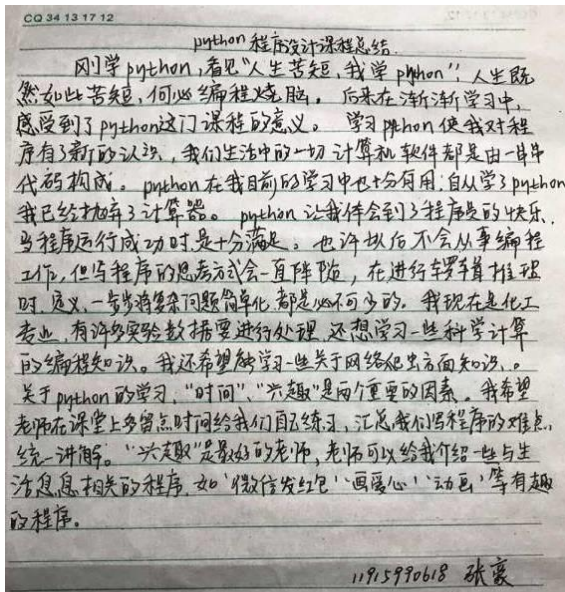 CQ 34 13 17 12
python 程序设计课程总结.
刚学python,看见“人生苦短,我学python”;人生既
然如此苦短,何必编程烧脑。后来在渐渐学习中,
感受到了python这门课程的意义。学习python使我对程
序有了新的认识,我们生活中的一切计算机软件都是由一串串
代码构成。python在我目前的学习中也十分有用,自从学了python
我已经抛弃了计算器。python让我体会到了程序员的快乐,
当程序运行成功时是十分满足。也许以后不会从事编程
工作,但写程序的思考方式会一直伴随,在进行逻辑推理
时,定义,一步步将复杂问题简单化,都是必不可少的。我现在是化工
专业,有许多实验数据要进行处理,还想学习一些科学计算
的编程知识。我还希望能学习一些关于网络爬虫方面知识。
关于python的学习,“时间”、“兴趣”是两个重要的因素。我希望
老师在课堂上多留点时间给我们自己练习,汇总我们写程序的难点,
统一讲解。“兴趣”是最好的老师,老师可以给我介绍一些与生
活息息相关的程序,如‘微信发红包’‘画爱心’‘动画’等有趣
的程序。
11915990618 张豪